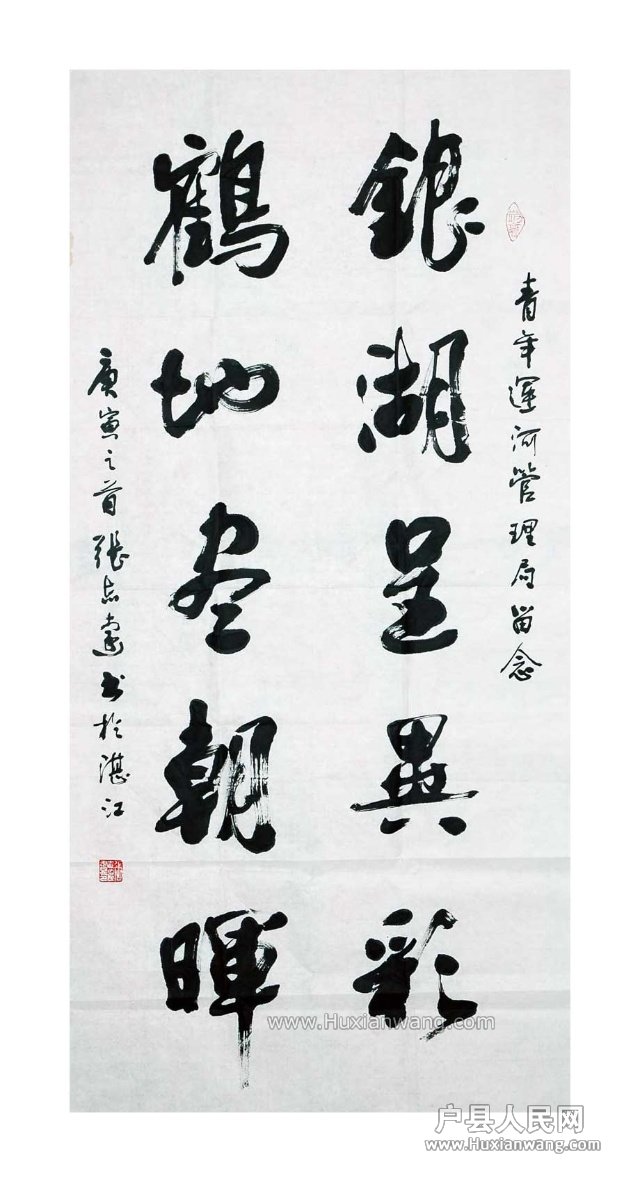 青年運河管理局留念
銀湖呈異彩
鶴地尽朝暉
庚寅之首張志 书於湛江
www.Huxianwang.com
户县人民网
www.Huxianwang.com